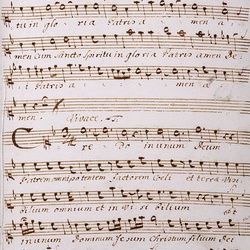 tu in glo ria Patris a men a
men cum Sancto Spiritu in gloria Patris amen de
i Patris a men a
men. Vivace.
Cre Do in unum Deum
Patrem omnipotentem factorem Coeli et terrae visi
bilium omnium et in vi si bilium et
in unum Dominum Jesum Christum filium Dei